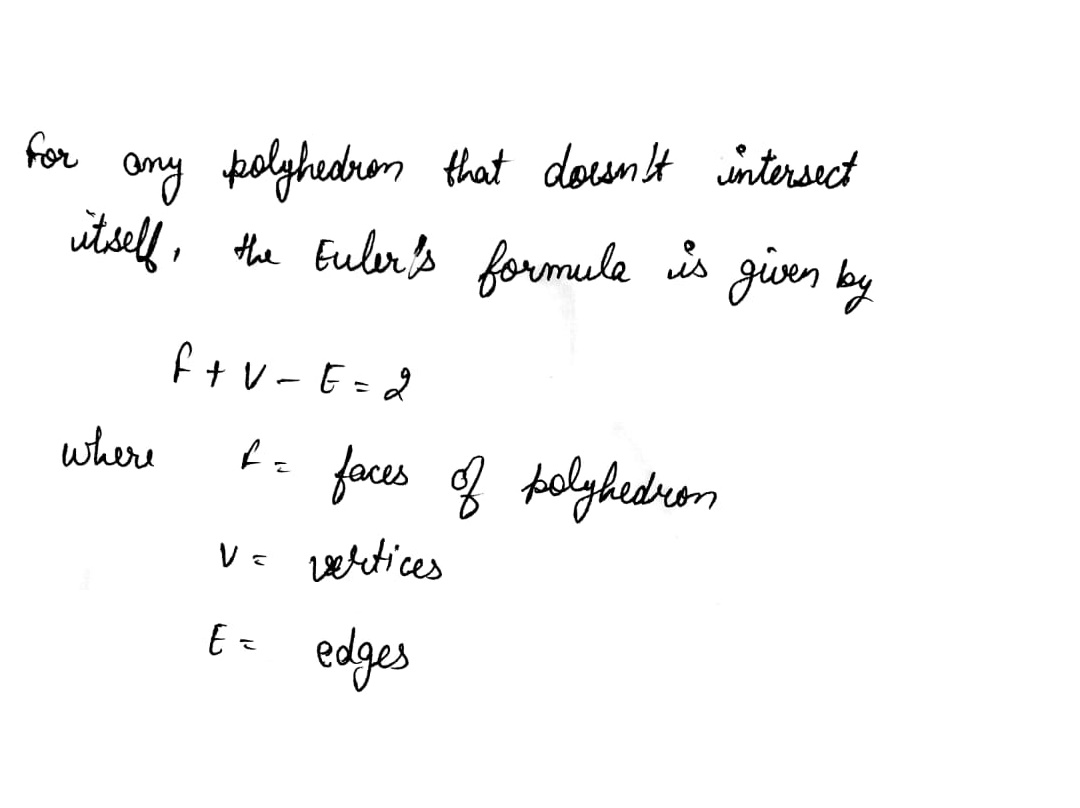 for any polyhedron that doesn't intersect
itself, the Euler's formula is given by
F + V - E = 2
where F = faces of polyhedron
V = vertices
E = edges